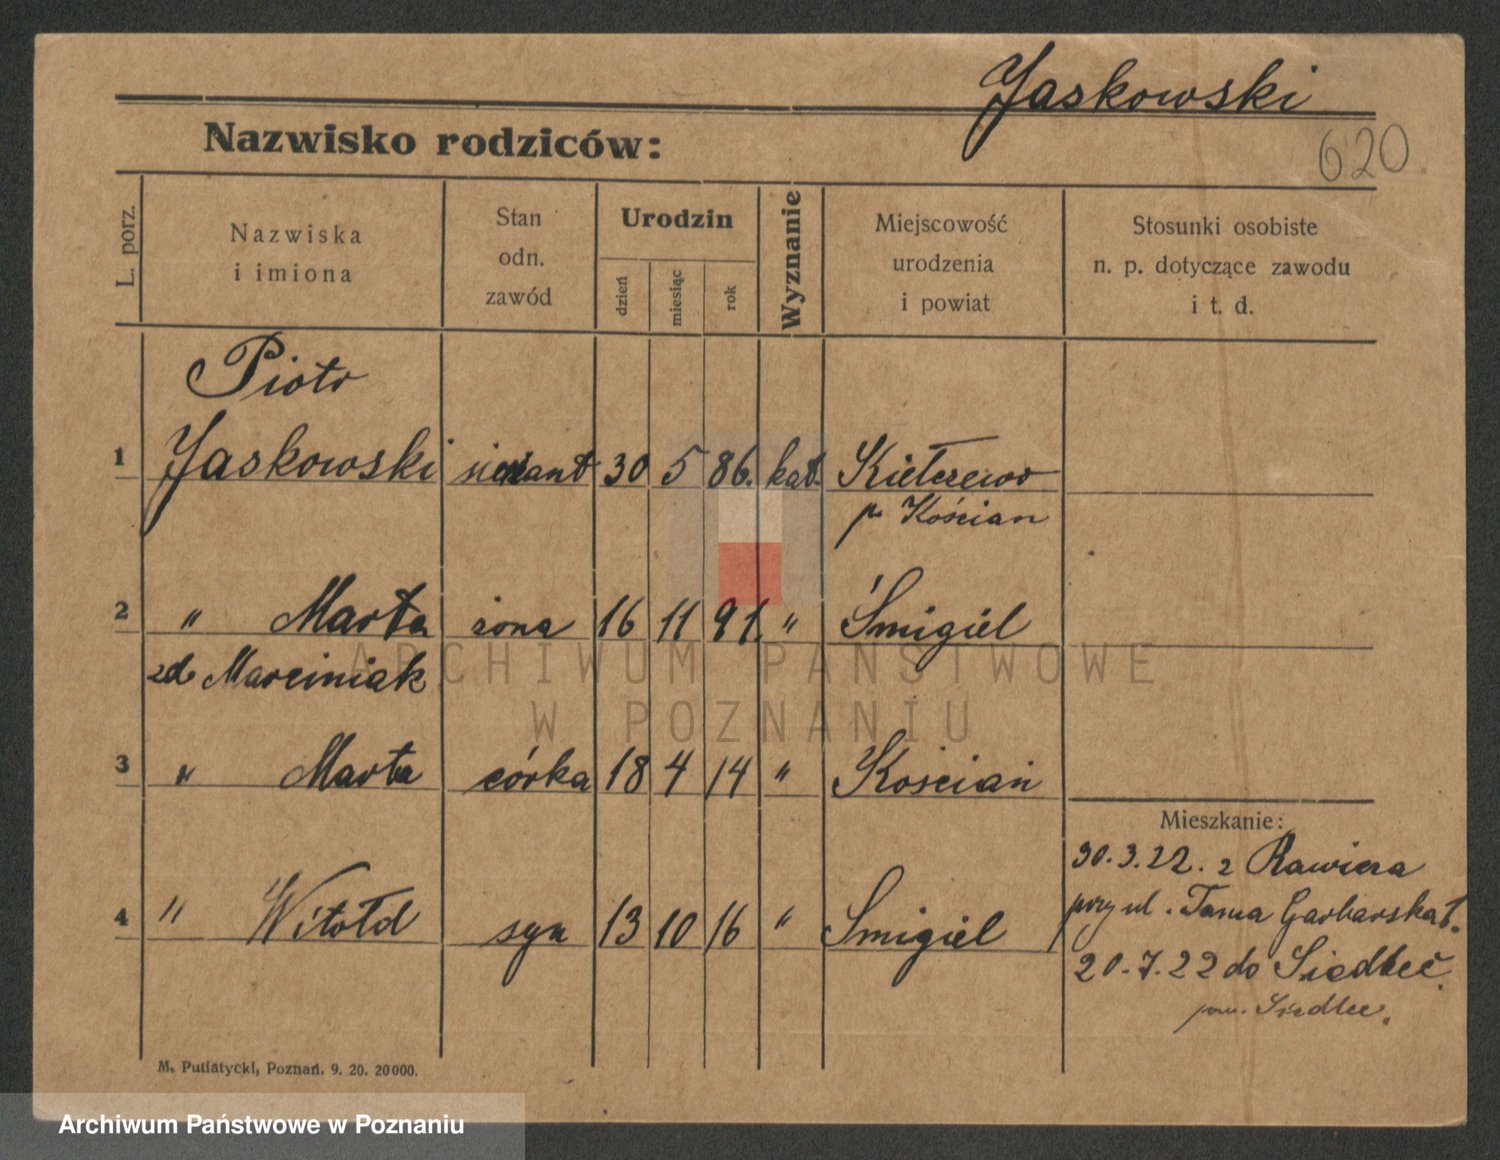 Jaskowski
Nazwisko rodziców:
620.
L. porz.
Nazwiska
i imiona
Stan
odn.
zawód
Urodzin
dzień
miesiąc
rok
Wyznanie
Miejscowość
urodzenia
i powiat
Stosunki osobiste
n. p. dotyczące zawodu
i t. d.
Piotr
1 Jaskowski sierżant 30 5 86. kat. Kiełczewo
p. Kościan
2 " Marta żona 16 11 91. " Śmigiel
zd. Marciniak
3 " Marta córka 18 4 14 " Kościan
Mieszkanie:
30.3.22. z Rawicza
4 " Witołd syn 13 10 16 " Smigiel
przy ul. Tama Garbarska
20.7.22 do Siedlec.
pow. Siedlec.
M. Putiatycki, Poznań. 9. 20. 20000.
ARCHIWUM PAŃSTWOWE
W POZNANIU
Archiwum Państwowe w Poznaniu